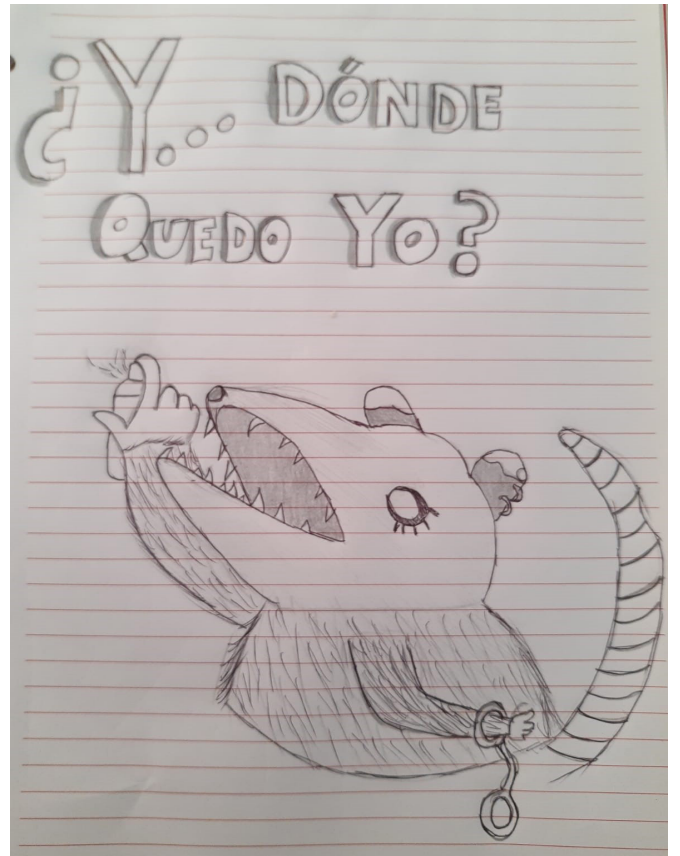 ¿Y... DÓNDE
QUEDO YO?